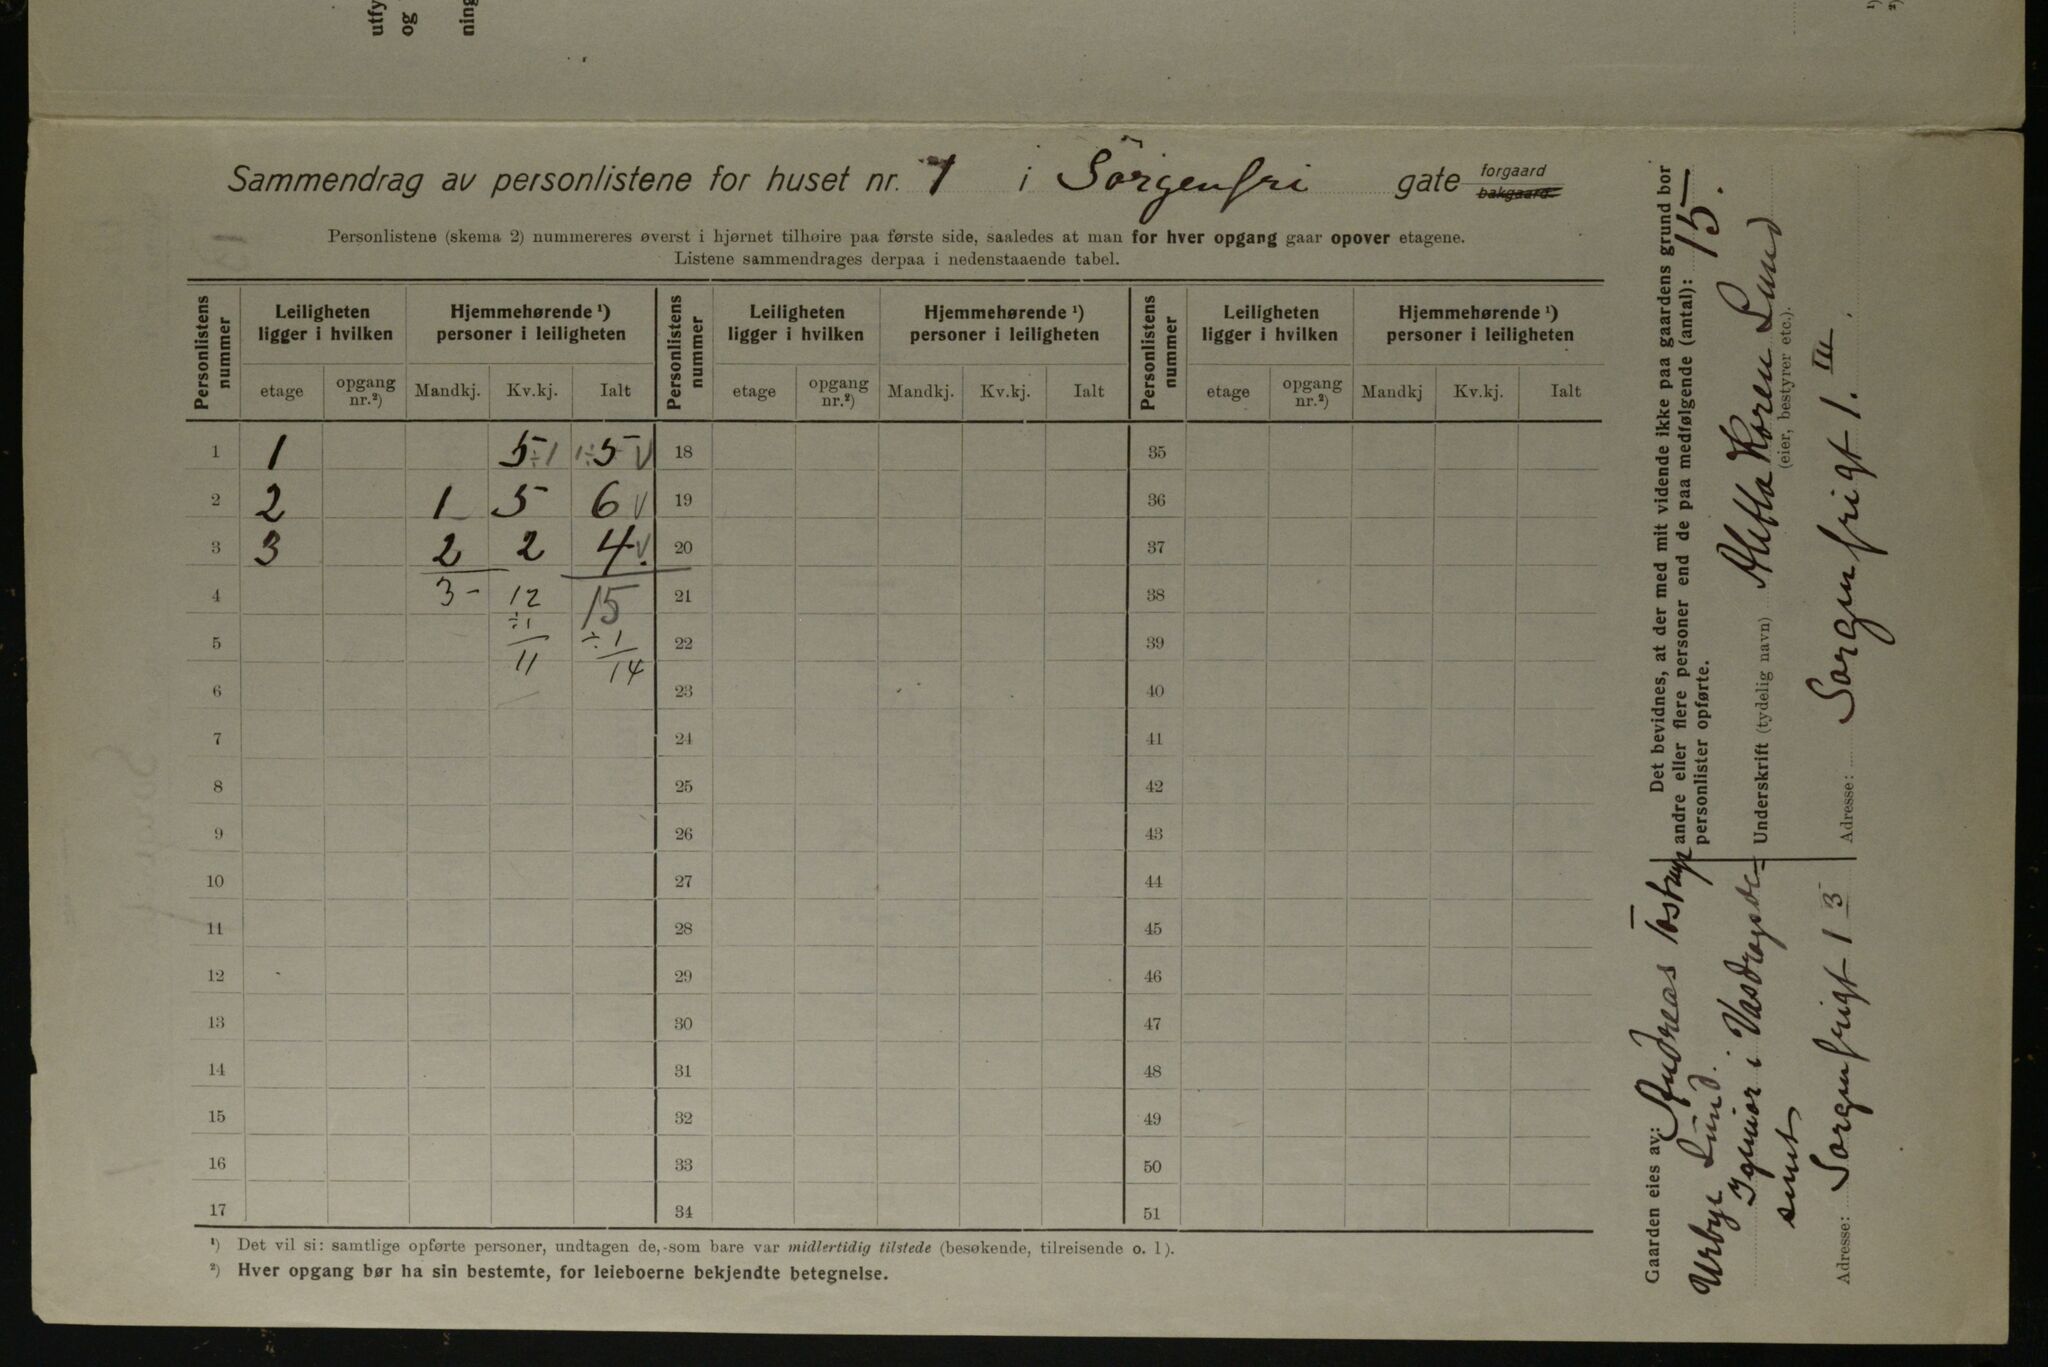 utfy
og
ning
¹)
²)
Sammendrag av personlistene for huset nr. 1 i Sörgenfri gate forgaard
bakgaard.
Personlistene (skema 2) nummereres øverst i hjørnet tilhøire paa første side, saaledes at man for hver opgang gaar opover etagene.
Listene sammendrages derpaa i nedenstaaende tabel.
Personlistens nummer | Leiligheten ligger i hvilken | Hjemmehørende ¹) personer i leiligheten | Personlistens nummer | Leiligheten ligger i hvilken | Hjemmehørende ¹) personer i leiligheten | Personlistens nummer | Leiligheten ligger i hvilken | Hjemmehørende ¹) personer i leiligheten
etage opgang nr.²) Mandkj. Kv.kj. Ialt etage opgang nr.²) Mandkj. Kv.kj. Ialt etage opgang nr.²) Mandkj Kv.kj. Ialt
1 1 5÷1 1÷5 V 18 35
2 2 1 5 6 V 19 36
3 3 2 2 4 V 20 37
4 3- 12 15 21 38
÷1
5 11 ÷1 22 39
14
6 23 40
7 24 41
8 25 42
9 26 43
10 27 44
11 28 45
12 29 46
13 30 47
14 31 48
15 32 49
16 33 50
17 34 51
¹) Det vil si: samtlige opførte personer, undtagen de, som bare var midlertidig tilstede (besøkende, tilreisende o. l).
²) Hver opgang bør ha sin bestemte, for leieboerne bekjendte betegnelse.
Det bevidnes, at der med mit vidende ikke paa gaardens grund bor
andre eller flere personer end de paa medfølgende (antal): 15.
personlister opførte.
Underskrift (tydelig navn) Koren Lund
(eier, bestyrer etc.).
Adresse: Sorgenfrigt 1. III.
Gaarden eies av: Andreas Tostrup
Urbye Lund.
Igeniør i Vasdragsve-
senet
Adresse: Sorgenfrigt 1 3